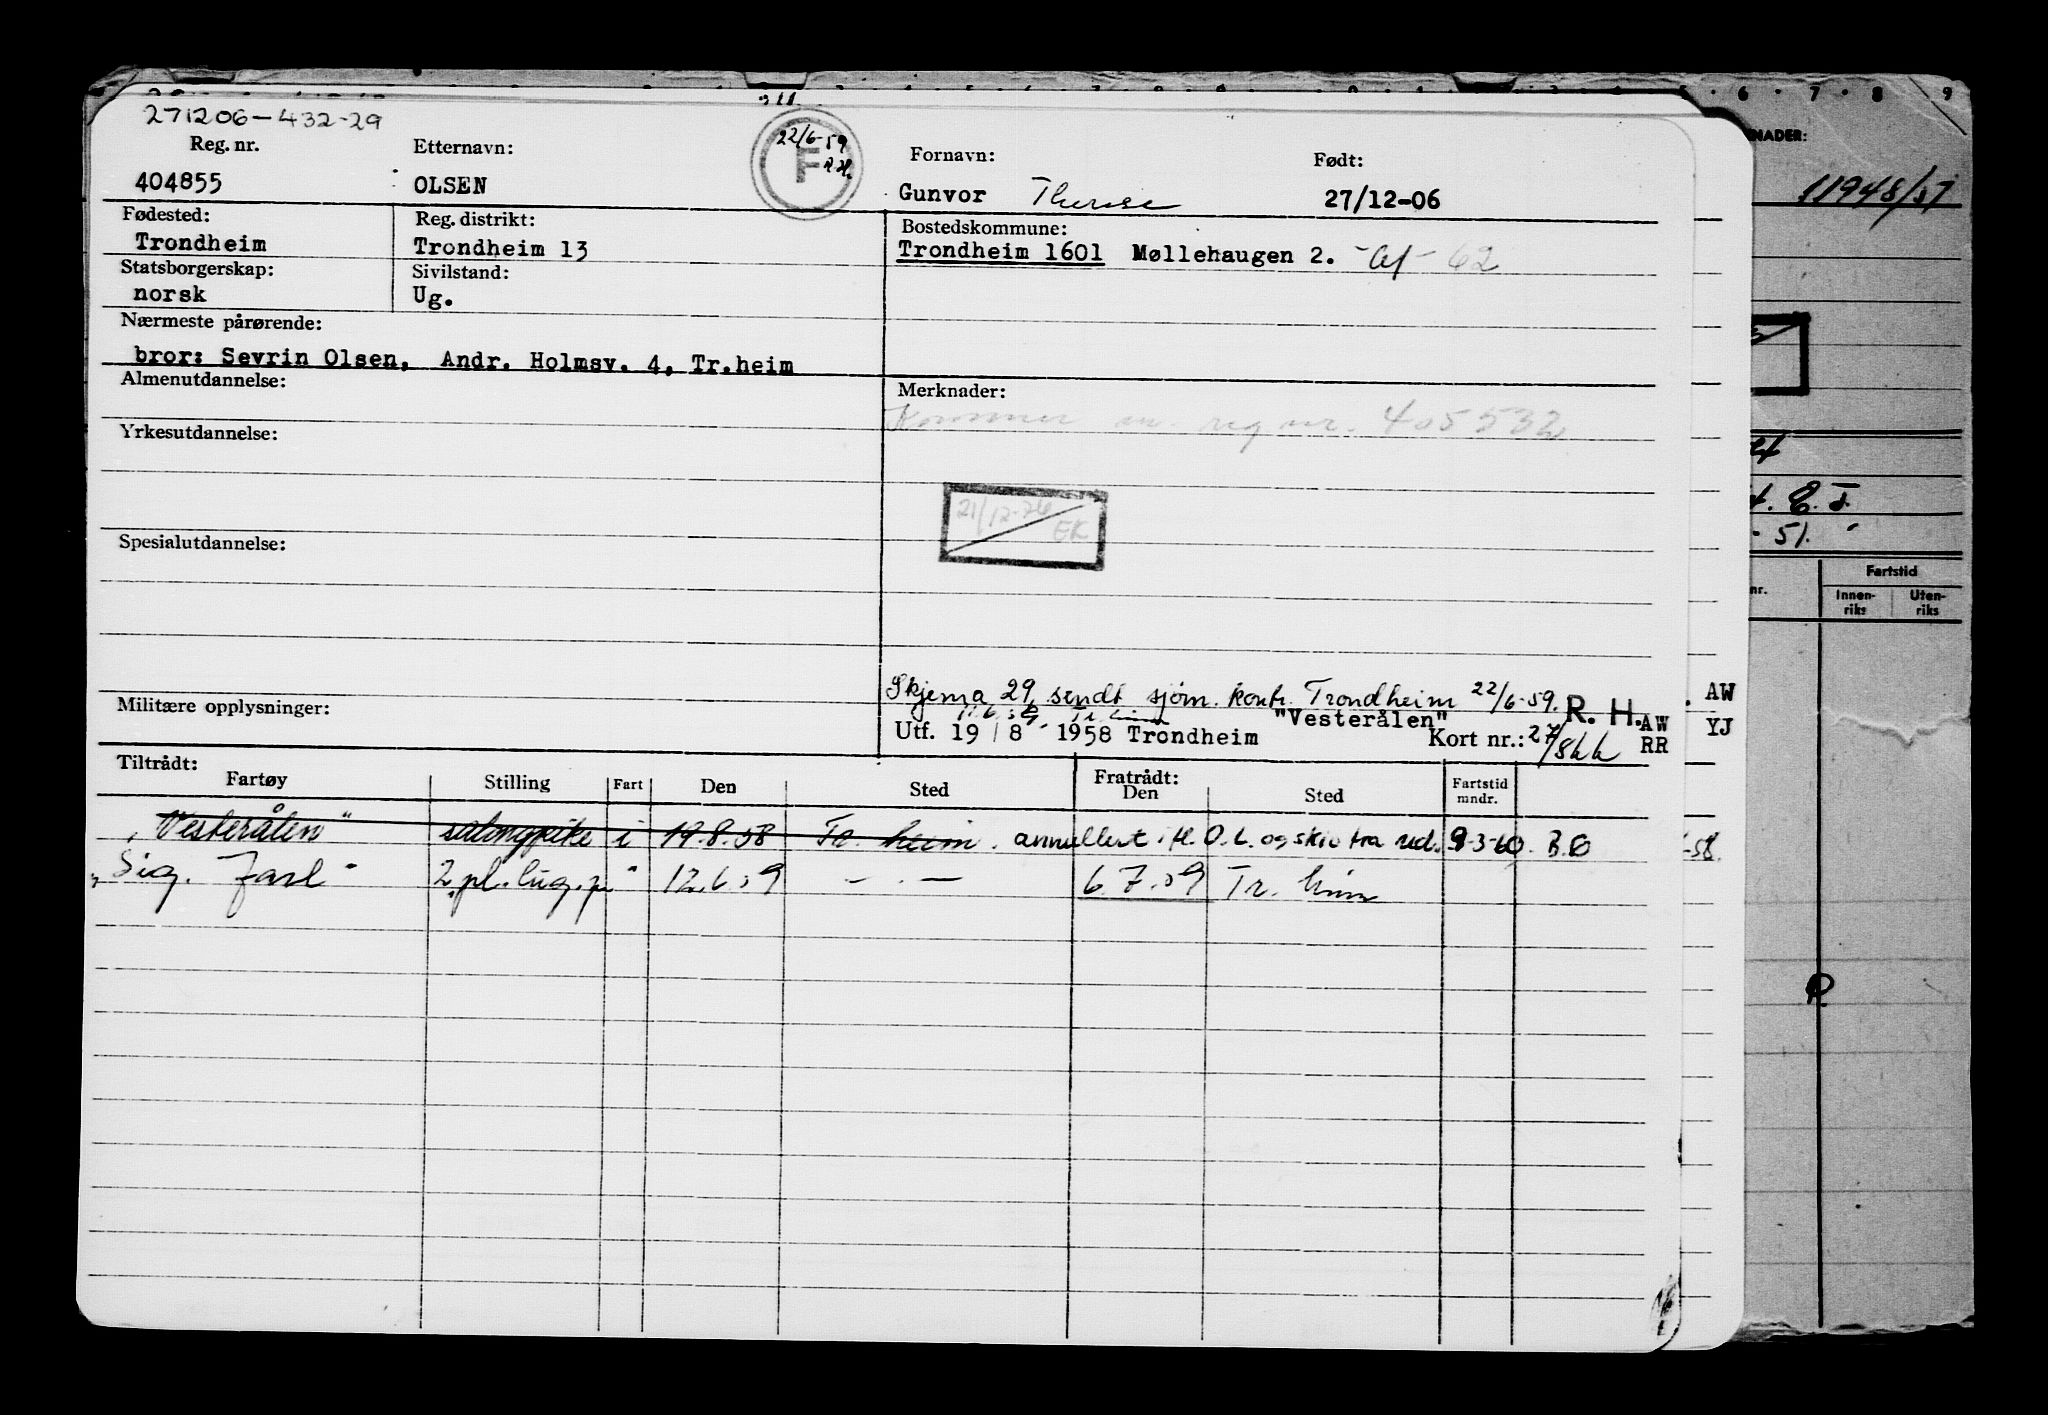 271206-432-29
Reg. nr. Etternavn: Fornavn: Født:
22/6-59
F R.H.
404855 OLSEN Gunvor Therese 27/12-06
Fødested: Reg. distrikt: Bostedskommune:
Trondheim Trondheim 13 Trondheim 1601 Møllehaugen 2. - 62
Statsborgerskap: Sivilstand:
norsk Ug.
Nærmeste pårørende:
bror: Sevrin Olsen, Andr. Holmsv. 4, Tr.heim
Almenutdannelse: Merknader:
Kommer m. reg nr. 405532
Yrkesutdannelse:
21/12-76
EK
Spesialutdannelse:
Skjema 29 sendt sjøm. kontr. Trondheim 22/6-59. R. H. AW
Militære opplysninger:
"Vesterålen" AW
Utf. 19/8 1958 Trondheim Kort nr.: 27/ RR YJ
Tiltrådt: Fratrådt:
Fartøy Stilling Fart Den Sted Den Sted Fartstid mndr.
"Vesterålen" salongpike i 19.8.58 Tr. heim. annullert i fl. O.L. og skiv fra red. 9-3-60. B.O
"Sig. Jarl" 2.pl.lug.p. " 12.6.59 — . — 6.7.59 Tr. heim
-58.
5 6 7 8 9
NADER:
11948/57
E. J.
- 51.
nr. Fartstid
Innen-riks Uten-riks
R